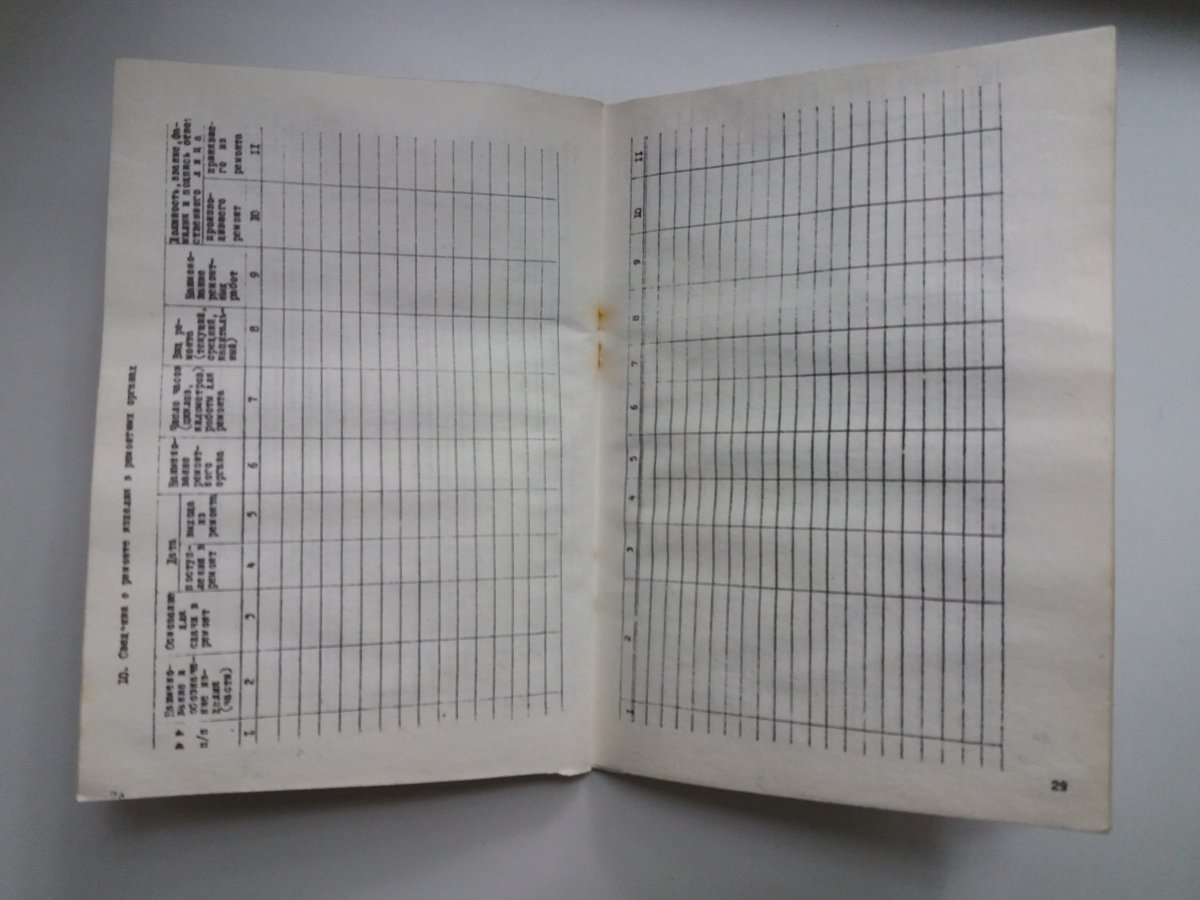 10. Сведения о ремонте изделия в ремонтных органах
№ №
п/п
Наимено-
вание и
обозначе-
ние из-
делия
(части)
Основание
для
сдачи в
ремонт
Дата
поступ-
ления в
ремонт
выхода
из
ремонта
Наимено-
вание
ремонт-
ного
органа
Число часов
(циклов,
километров)
работы для
ремонта
Вид ре-
монта
(текущий,
средний,
капиталь-
ный)
Наимено-
вание
ремонт-
ных
работ
Должность, звание, фа-
милия и подпись ответ
ственного лица
произво-
дившего
ремонт
принявше-
го из
ремонта
I 2 3 4 5 6 7 8 9 10 II
I 2 3 4 5 6 7 8 9 10 II
29